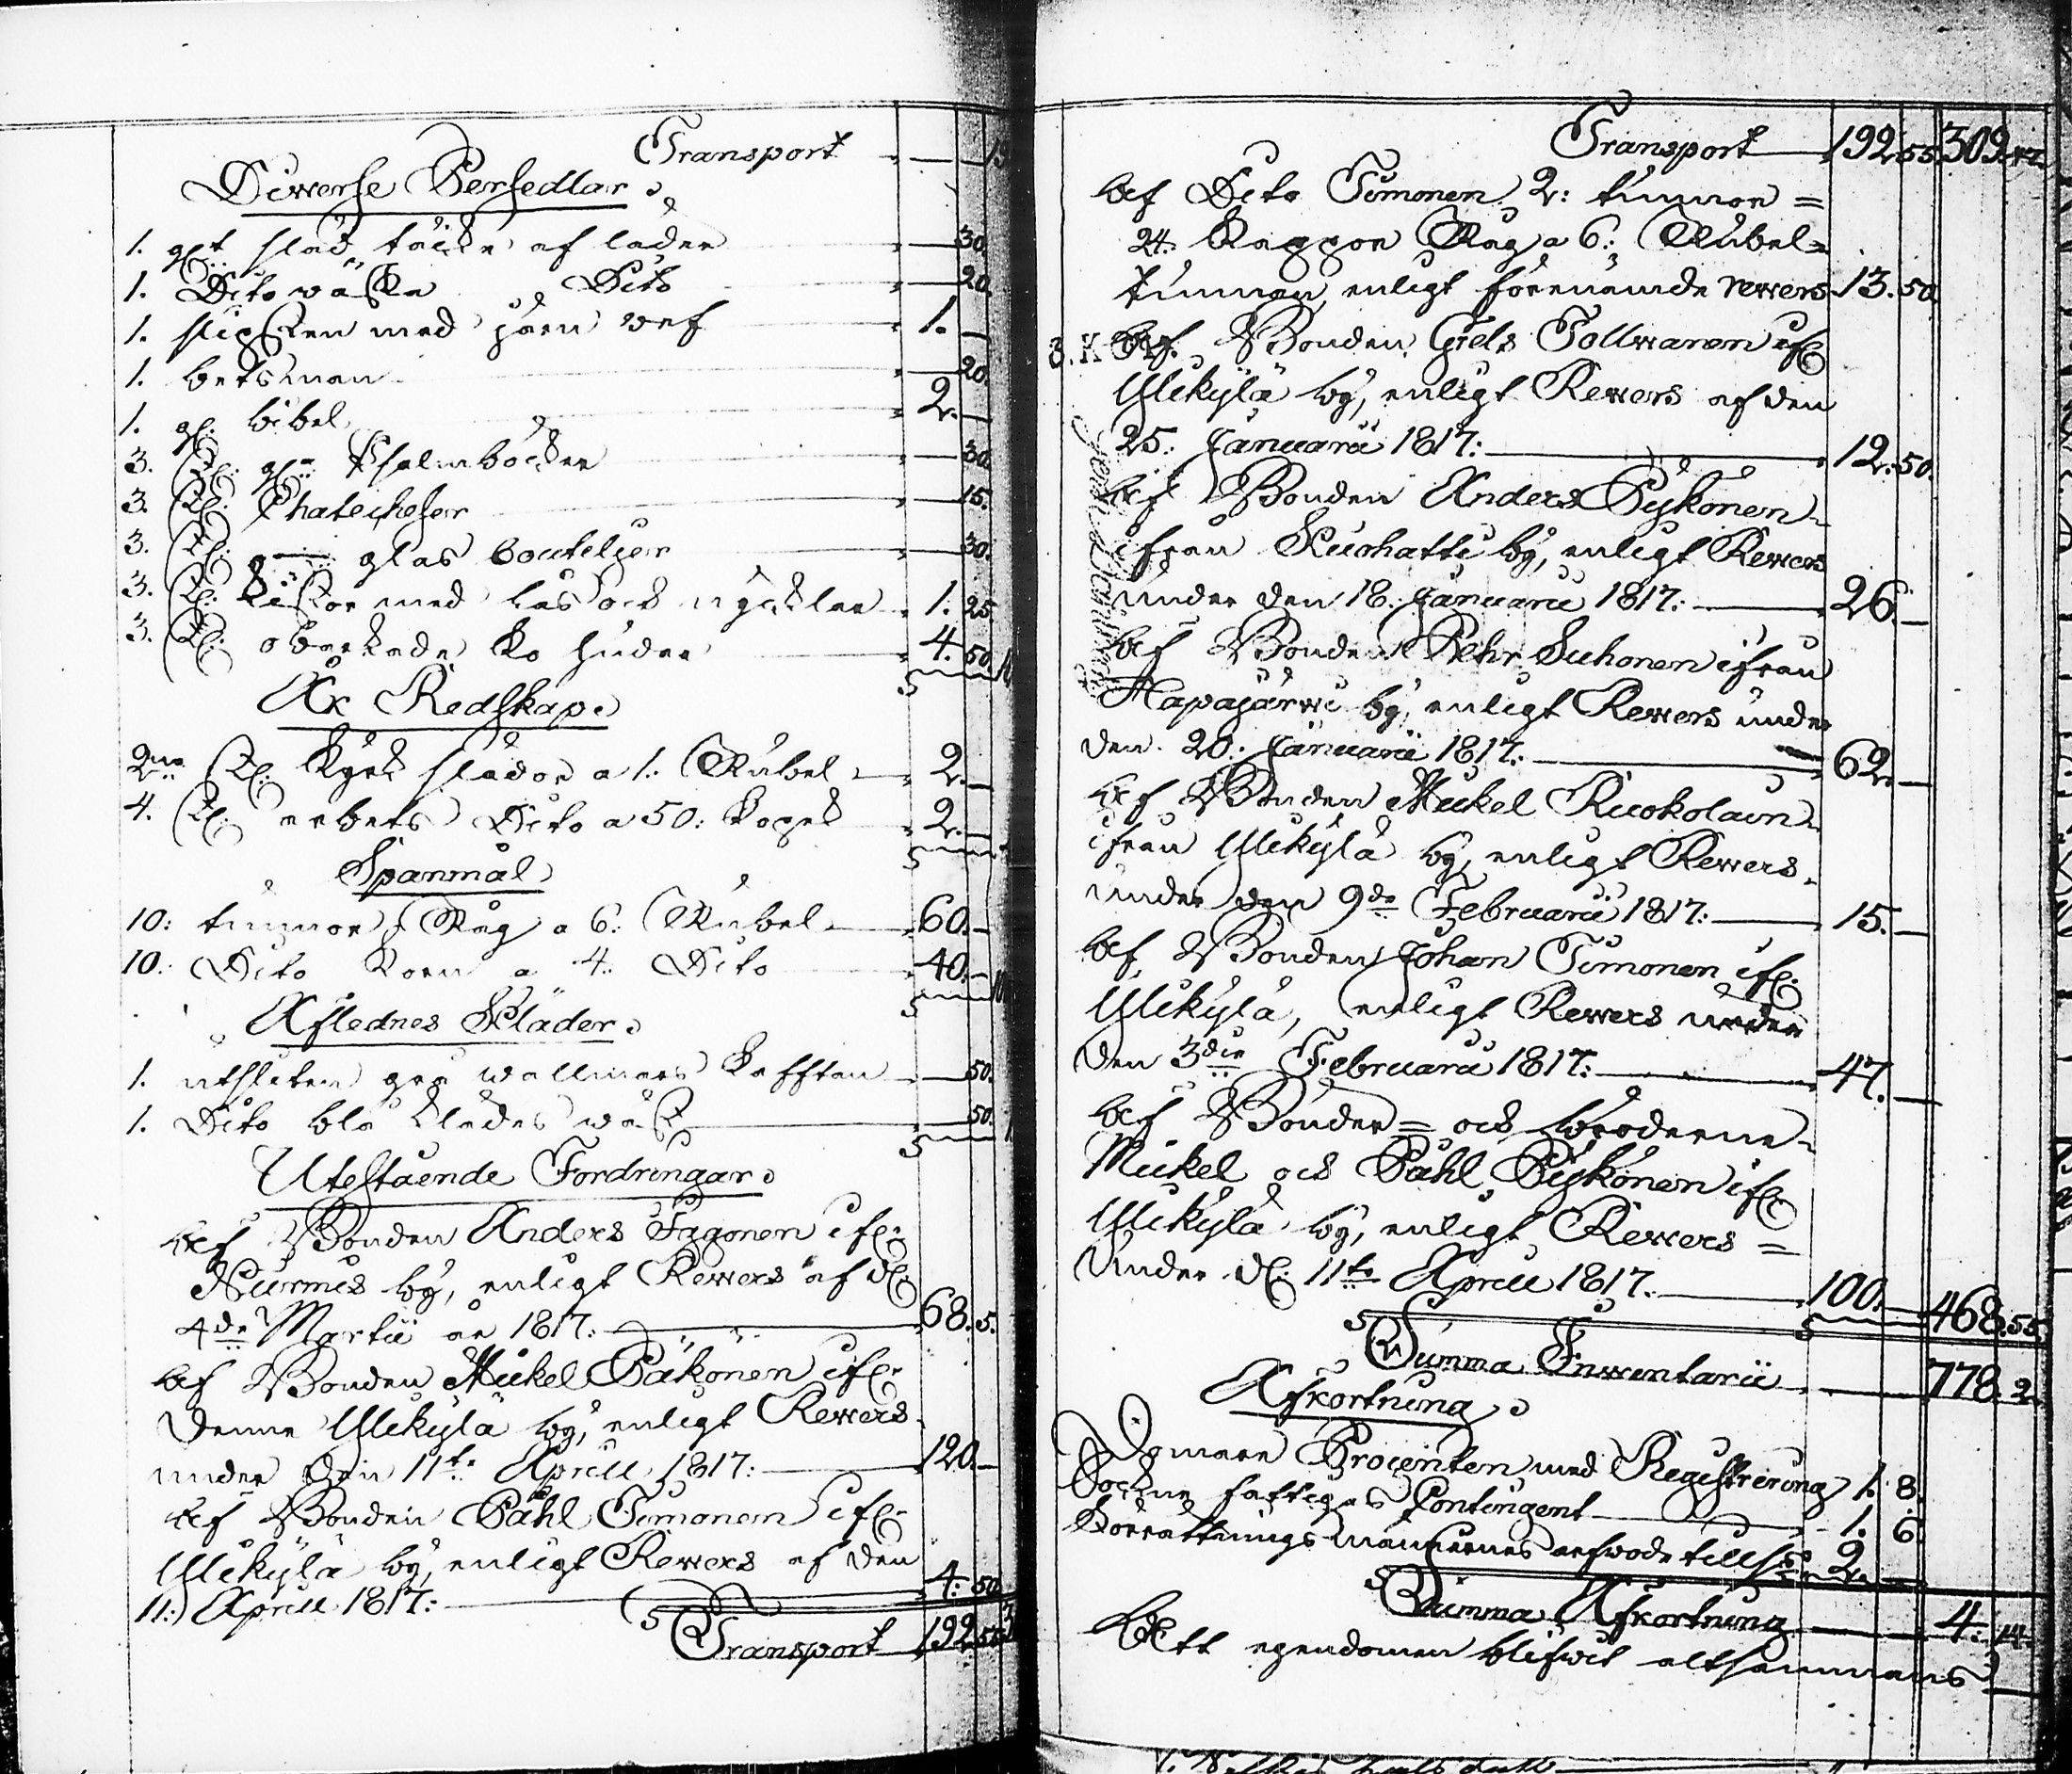 Transport
Diwerse Persedlar
1. gl:t släd täcke af läder 30.
1. Dito wäska Dito 20.
1. slipsten med järn wef 1. —
1. betsman 20.
1. gl. bibel 2. —
3. St: gl: Psalmböcker 30.
3. St: Chatecheser 15.
3. St: glas bouteljer 30.
3. St: Kistor med lås och nycklar 1. 25
3. St: obarkade ko hudar 4. 50
Åk Redskap
2ne St: Kyrk slädar a 1: Rubel 2. —
4. St: arbets Dito a 50: kopek 2. —
Spanmål
10: tunnor Råg a 6: Rubel 60. —
10: Dito Korn a 4: Dito 40. —
Aflednes Kläder
1. utsliten grå wallmars kafftan 50.
1. Dito blå klädes wäst 50.
Utestående Fordringar
Af Bonden Anders Tagonen ifr:
Nurmes by, enligt Rewers af d:
4de Martii år 1817: 68. 5.
Af Bonden Mickel Päkönen ifr:
denne Ulikylä by, enligt Rewers
under den 11te April 1817: 120. —
Af Bonden Påhl Timonen ifr:
Ulikylä by, enligt Rewers af den
11: April 1817: 4: 50
Transport 192 55
Transport 192 55 309 47
Af Dito Timonen 2: tunnor =
24. Kappor Råg a 6: Rubel =
tunnan, enligt förenämde rewers 13. 50.
3. K Af Bonden Giels Tollwanen ifr
Ulikylä by, enligt Rewers af den
25: Januarii 1817: 12. 50.
Af Bonden Anders Pykönen
ifrån Kuohatti by, enligt Rewers
under den 18. Januarii 1817: 26. —
Af Bonden Pehr Suhonen ifrån
Hapajärwi by, enligt Rewers under
den 20: Januarii 1817: 62. —
Af Bonden Mickel Ruokolain
ifrån Ulikylä by, enligt Rewers
under den 9de Februarii 1817: 15. —
Af Bonden Johan Timonen ifr:
Ulikylä, enligt Rewers under
den 3die Februarii 1817: 47. —
Af Bönder = och bröderne
Mickel och Påhl Pykönen ifr
Ulikylä by, enligt Rewers =
Under d: 11te April 1817. 100. — 468. 55.
Summa Inwentarii 778. 2
Afkortning
Domare Procenten med Registrering 1. 8.
Sockne fattigas Contingent 1. 6.
Förrättnings männernes arfwode tills: 2. —
Summa Afkortning 4: 14.
Att egendomen blifwit altsammans